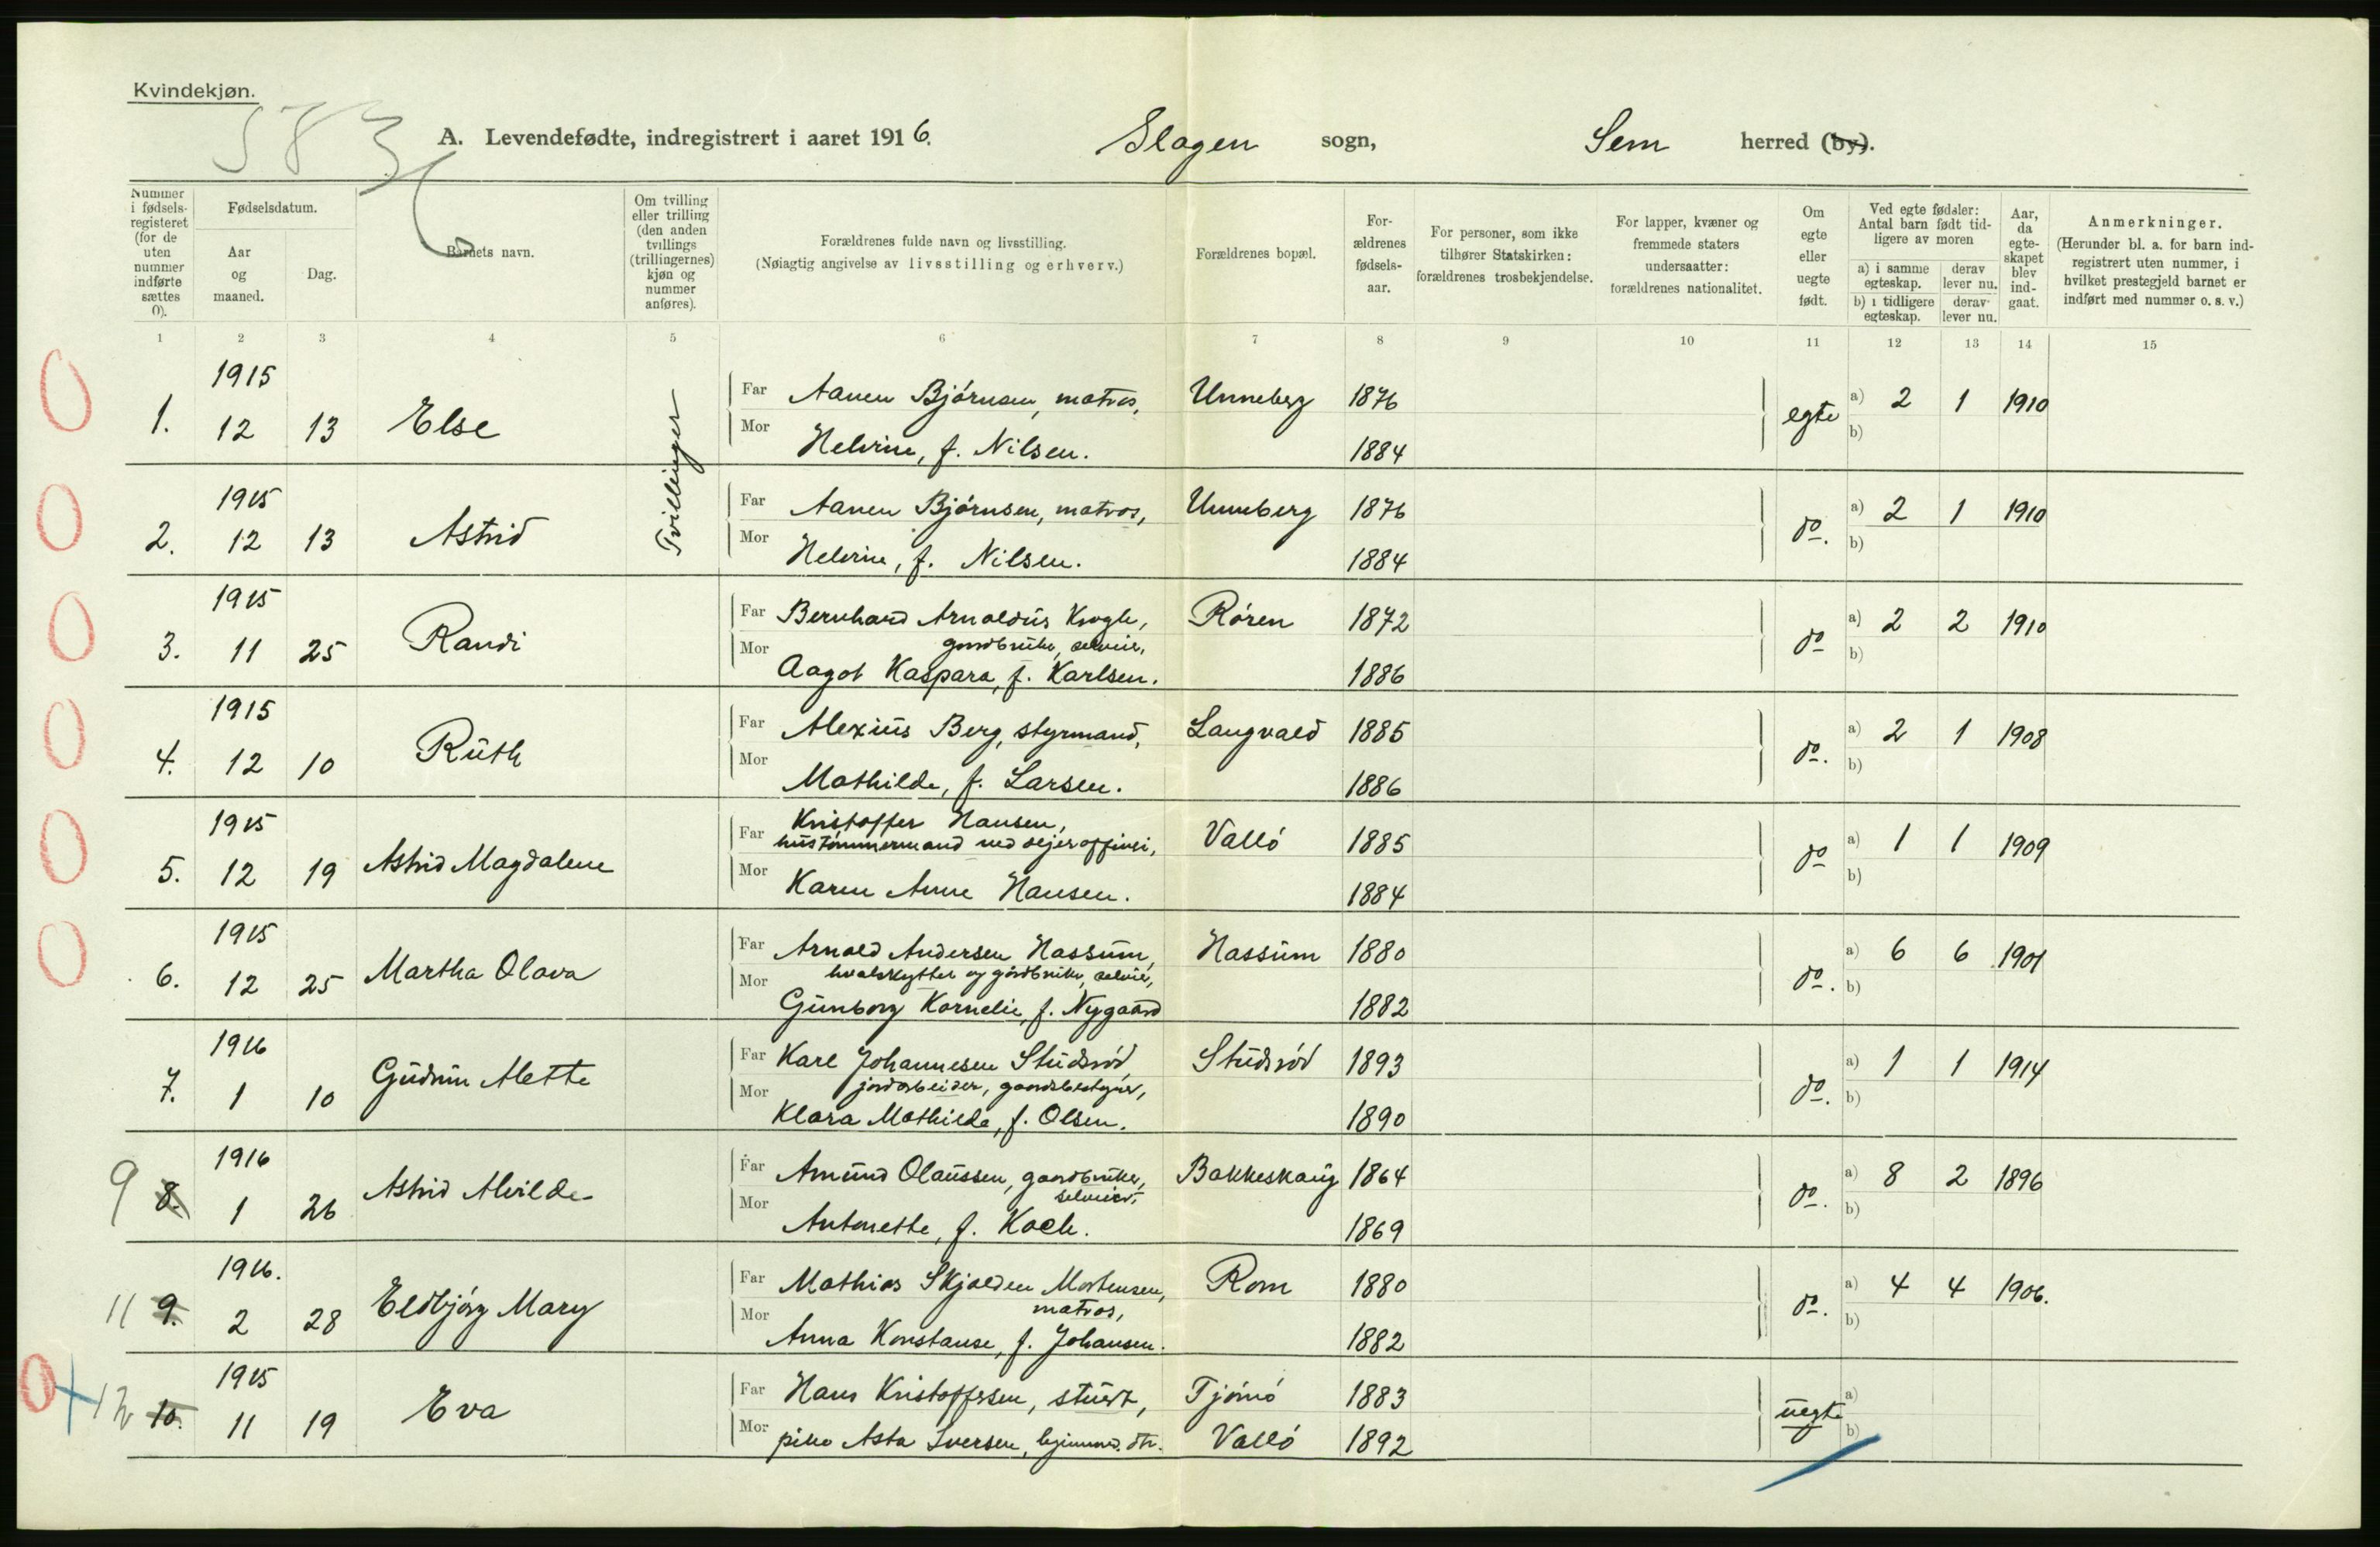 Kvindekjøn.
5836
A. Levendefødte, indregistrert i aaret 1916. Slagen sogn, Sem herred (by).
Nummer i fødselsregisteret (for de uten nummer indførte sættes 0).
Fødselsdatum.
Aar og maaned.
Dag.
Barnets navn.
Om tvilling eller trilling (den anden tvillings (trillingernes) kjøn og nummer anføres).
Forældrenes fulde navn og livsstilling.
(Nøiagtig angivelse av livsstilling og erhverv.)
Forældrenes bopæl.
Forældrenes fødselsaar.
For personer, som ikke tilhører Statskirken: forældrenes trosbekjendelse.
For lapper, kvæner og fremmede staters undersaatter: forældrenes nationalitet.
Om egte eller uegte født.
Ved egte fødsler: Antal barn født tidligere av moren
a) i samme egteskap. derav lever nu.
b) i tidligere egteskap. derav lever nu.
Aar, da egteskapet blev indgaat.
Anmerkninger.
(Herunder bl. a. for barn indregistrert uten nummer, i hvilket prestegjeld barnet er indført med nummer o. s. v.)
1 2 3 4 5 6 7 8 9 10 11 12 13 14 15
0 1. 1915 12 13 Else Tvillinger
Far Aanen Bjørnsen, matros, Unneberg 1876 egte a) 2 1 1910
Mor Helvine, f. Nilsen. 1884 b)
0 2. 1915 12 13 Astrid
Far Aanen Bjørnsen, matros, Unneberg 1876 do. a) 2 1 1910
Mor Helvine, f. Nilsen. 1884 b)
0 3. 1915 11 25 Randi
Far Bernhard Arnoldus Krogh, Røren 1872 do a) 2 2 1910
gaardbruker, selveier,
Mor Aagot Kaspara, f. Karlsen. 1886 b)
0 4. 1915 12 10 Ruth
Far Alexius Berg, styrmand, Langvald 1885 do. a) 2 1 1908
Mor Mathilde, f. Larsen. 1886 b)
0 5. 1915 12 19 Astrid Magdalene
Far Kristoffer Hansen, Valló 1885 do a) 1 1 1909
hustømmermand ved
Mor Karen Anne Hansen. 1884 b)
0 6. 1915 12 25 Martha Olava
Far Arnold Andersen Hassum, Hassum 1880 do. a) 6 6 1901
hvalskytter og gårdbruker, selveier,
Mor Gunborg Kornelie, f. Nygaard 1882 b)
7. 1916 1 10 Gudrun Alette
Far Karl Johannesen Studsrød, Studsrød 1893 do. a) 1 1 1914
jordarbeider, gaardsbestyrer,
Mor Klara Mathilde, f. Olsen. 1890 b)
9 8. 1916 1 26 Astrid Alvilde
Far Amund Olaussen, gaardbruker, Bakkeskaug 1864 do. a) 8 2 1896
selveier,
Mor Antonette, f. Koch. 1869 b)
11 9. 1916. 2 28 Eldbjørg Mary
Far Mathias Skjalden Mortensen, Rom 1880 do. a) 4 4 1906.
matros,
Mor Anna Konstanse, f. Johansen. 1882 b)
0 12 10. 1915 11 19 Eva
Far Hans Kristoffersen, stuert, Tjømø 1883 uegte a)
Mor pike Asta Iversen, hjemmev. dtr. Valló 1892 b)